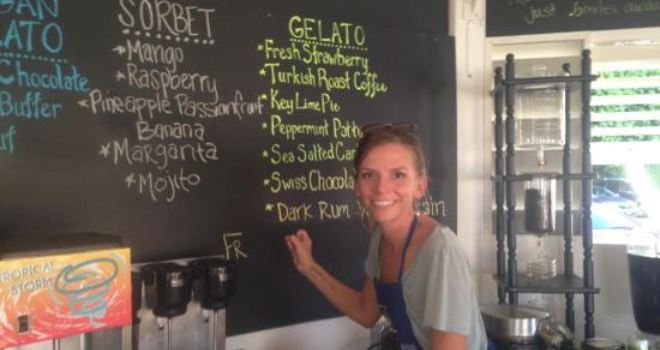 GAN
LATO
Chocolate
Buffer
SORBET
*Mango
*Raspberry
*Pineapple Passionfruit
Banana
*Margarita
*Mojito
GELATO
*Fresh Strawberry
*Turkish Roast Coffee
*Key Lime Pie
*Peppermint Patt
*Sea Salted Ca
*Swiss Chocola
*Dark Rum
FR
TROPICAL
STORM
just